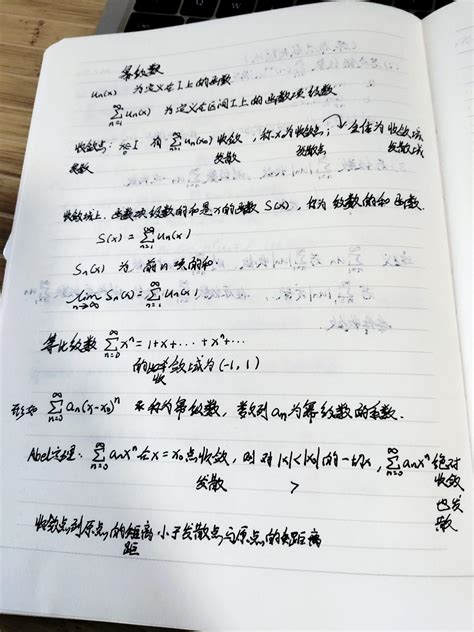 幂级数
uₙ(x) 为定义在 I 上的函数
∑_{n=1}^{∞} uₙ(x) 为定义在区间 I 上的函数项级数.
收敛点: x₀∈I 有 ∑_{n=1}^{∞} uₙ(x₀) 收敛, 称 x₀ 为收敛点; 全体为收敛域
发散 发散 发散点 发散域
收敛域上. 函数项级数的和是 x 的函数 S(x), 称为级数的和函数.
S(x) = ∑_{n=1}^{∞} uₙ(x)
Sₙ(x) 为前 n 项的和
lim_{n→∞} Sₙ(x) = ∑_{n=1}^{∞} uₙ(x)
等比级数 ∑_{n=0}^{∞} xⁿ = 1+x+...+xⁿ+...
的收敛域为 (-1, 1)
形如 ∑_{n=0}^{∞} aₙ(x-x₀)ⁿ 称为幂级数, 常数 aₙ 为幂级数的系数.
Abel定理: ∑_{n=0}^{∞} aₙxⁿ 在 x=x₀ 点收敛, 则对 |x|<|x₀| 的一切 x, ∑_{n=0}^{∞} aₙxⁿ 绝对收敛
发散 > 也发散
收敛点到原点的距离小于发散点与原点的距离
距